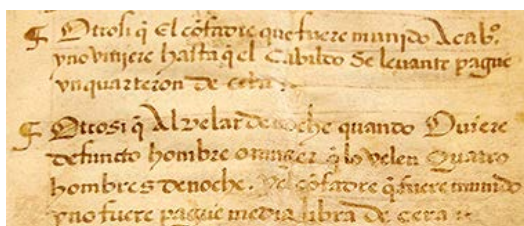 ¶ Otrosi q̃ El cõfadre que fuere muñido A cabº.
y no viniere hasta q̃ el Cabildo Se levante pague
vn quarteron de cera
¶ Otrosi q̃ Al velar de noche quando Oviere
defuncto hombre o muger q̃ lo velen Quatro
hombres de noche. y el cõfadre q̃ fuere munido
y no fuere pague media libra de cera